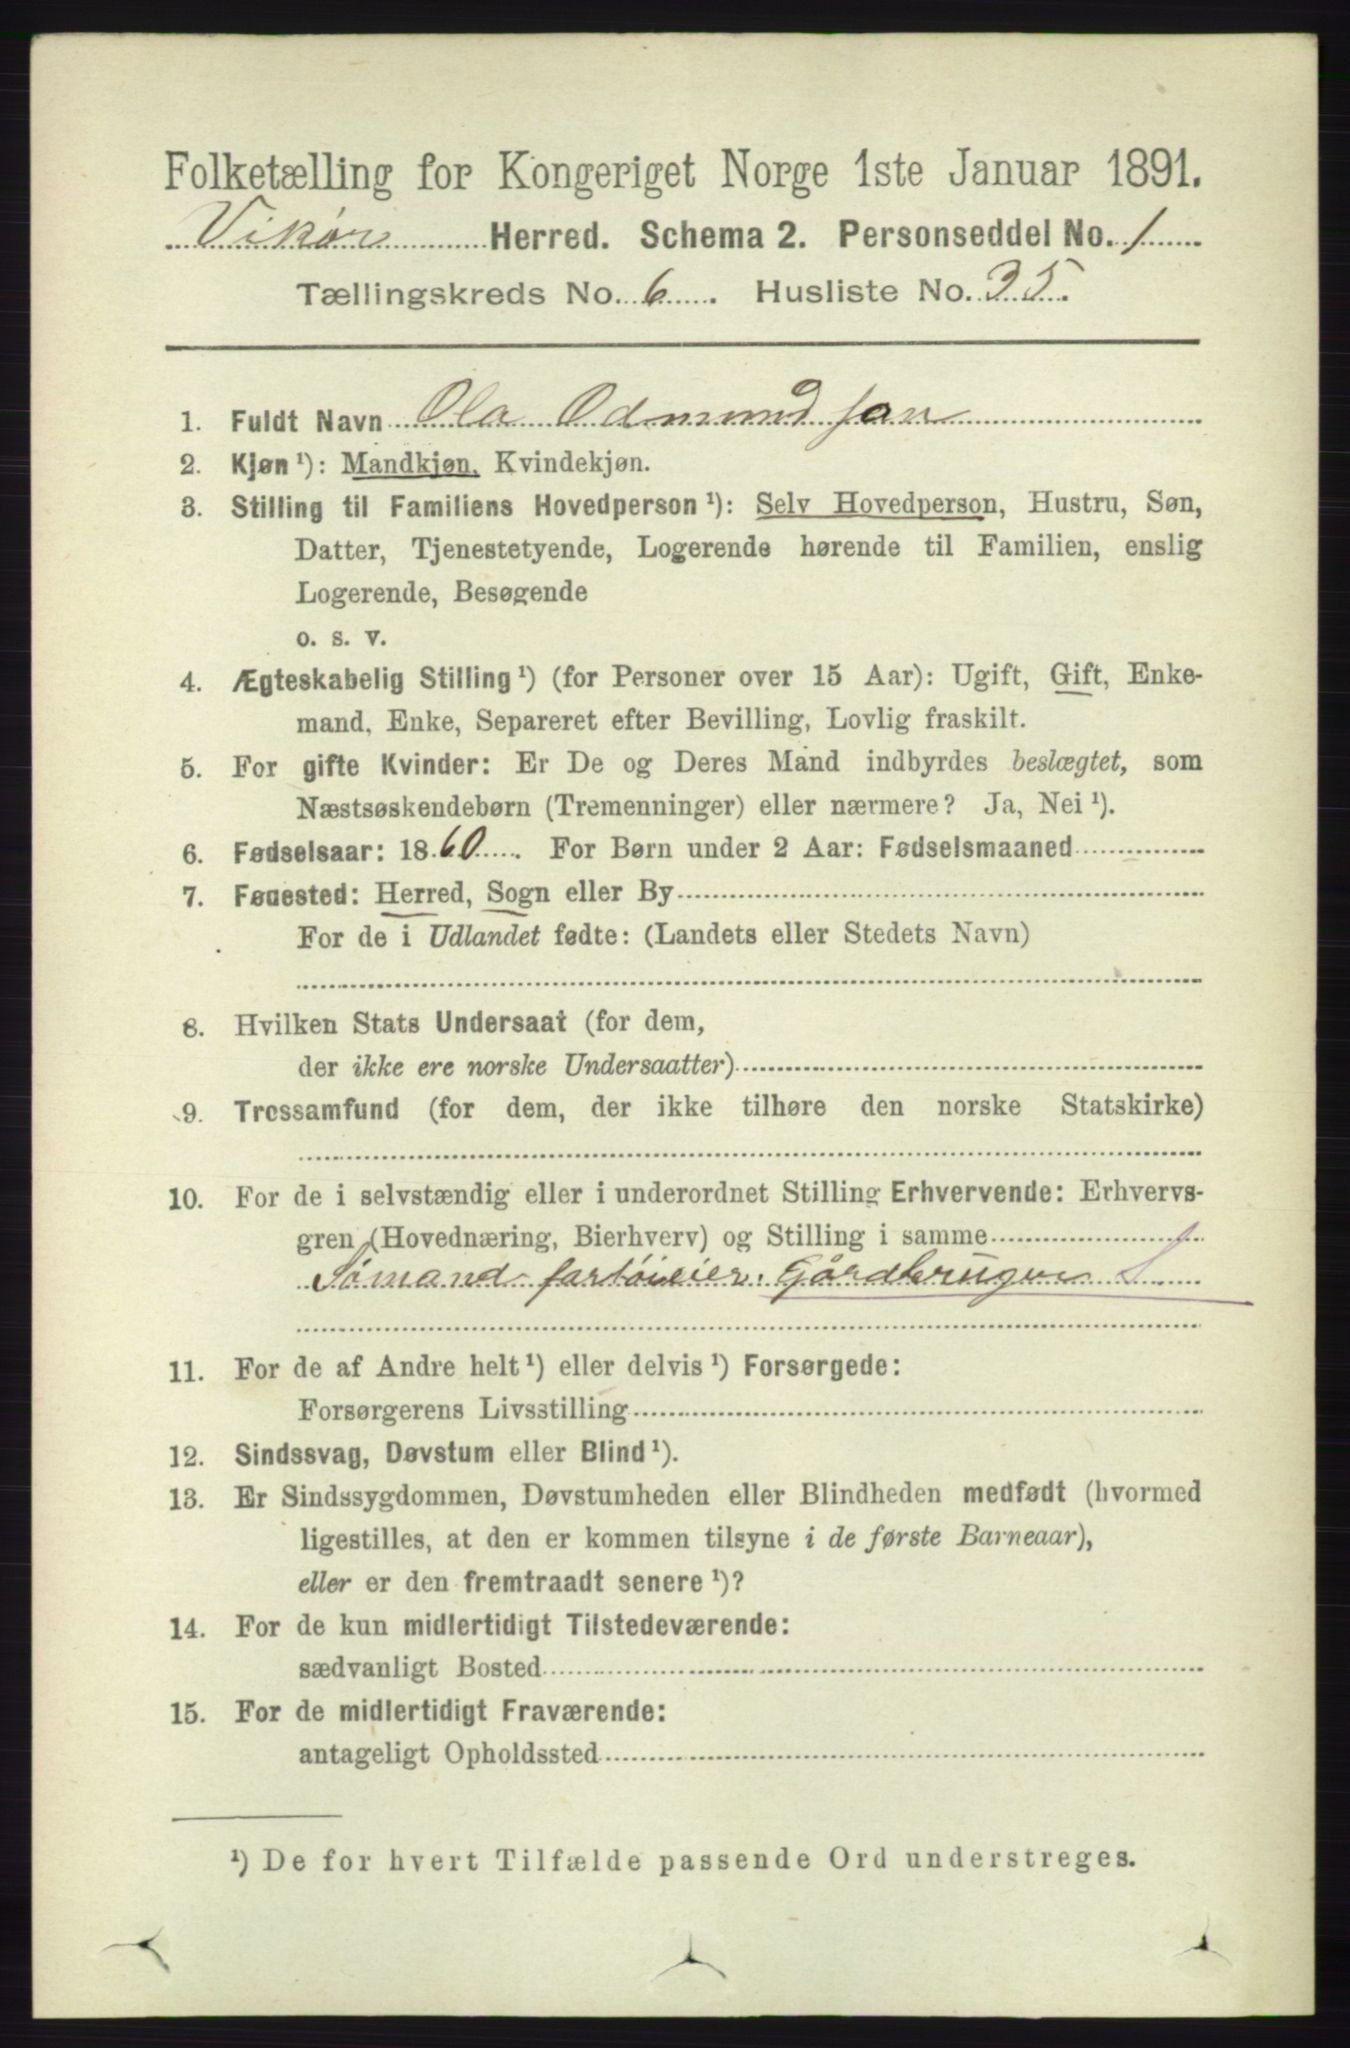 Folketælling for Kongeriget Norge 1ste Januar 1891.
Vikør Herred. Schema 2. Personseddel No. 1
Tællingskreds No. 6. Husliste No. 35.
1. Fuldt Navn Ola Odmundson
2. Kjøn ¹): Mandkjøn, Kvindekjøn.
3. Stilling til Familiens Hovedperson ¹): Selv Hovedperson, Hustru, Søn,
Datter, Tjenestetyende, Logerende hørende til Familien, enslig
Logerende, Besøgende
o. s. v.
4. Ægteskabelig Stilling ¹) (for Personer over 15 Aar): Ugift, Gift, Enke-
mand, Enke, Separeret efter Bevilling, Lovlig fraskilt.
5. For gifte Kvinder: Er De og Deres Mand indbyrdes beslægtet, som
Næstsøskendebørn (Tremenninger) eller nærmere? Ja, Nei ¹).
6. Fødselsaar: 1860. For Børn under 2 Aar: Fødselsmaaned
7. Fødested: Herred, Sogn eller By
For de i Udlandet fødte: (Landets eller Stedets Navn)
8. Hvilken Stats Undersaat (for dem,
der ikke ere norske Undersaatter)
9. Trossamfund (for dem, der ikke tilhøre den norske Statskirke)
10. For de i selvstændig eller i underordnet Stilling Erhvervende: Erhvervs-
gren (Hovednæring, Bierhverv) og Stilling i samme
Sømand fartøieier. Gårdbruger S
11. For de af Andre helt ¹) eller delvis ¹) Forsørgede:
Forsørgerens Livsstilling
12. Sindssvag, Døvstum eller Blind ¹).
13. Er Sindssygdommen, Døvstumheden eller Blindheden medfødt (hvormed
ligestilles, at den er kommen tilsyne i de første Barneaar),
eller er den fremtraadt senere ¹)?
14. For de kun midlertidigt Tilstedeværende:
sædvanligt Bosted
15. For de midlertidigt Fraværende:
antageligt Opholdssted
¹) De for hvert Tilfælde passende Ord understreges.